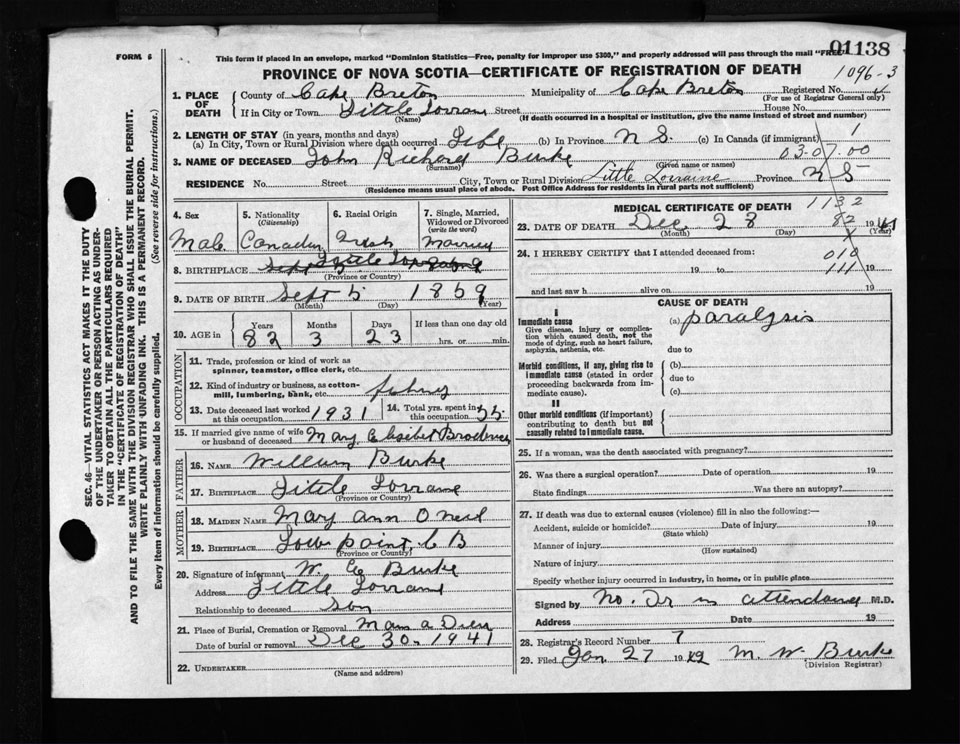 01138
FORM 6
This form if placed in an envelope, marked "Dominion Statistics—Free, penalty for improper use $300," and properly addressed will pass through the mail "FREE"
PROVINCE OF NOVA SCOTIA—CERTIFICATE OF REGISTRATION OF DEATH 1096-3
1. PLACE OF DEATH
County of Cape Breton Municipality of Cape Breton Registered No.
(For use of Registrar General only)
If in City or Town Little Lorraine Street House No.
(Name) (If death occurred in a hospital or institution, give the name instead of street and number)
2. LENGTH OF STAY (in years, months and days)
(a) In City, Town or Rural Division where death occurred Life (b) In Province N S. (c) In Canada (if immigrant) 1
03.07.00
3. NAME OF DECEASED John Richard Burke
(Surname) (Given name or names)
RESIDENCE No. Street City, Town or Rural Division Little Lorraine Province N S
(Residence means usual place of abode. Post Office Address for residents in rural parts not sufficient)
4. Sex
Male
5. Nationality
(Citizenship)
Canadian
6. Racial Origin
Irish
7. Single, Married, Widowed or Divorced
(write the word)
Married
8. BIRTHPLACE Little Lorraine
(Province or Country)
9. DATE OF BIRTH Sept 5 1859
(Month) (Day) (Year)
10. AGE in
Years Months Days If less than one day old
82 3 23 hrs. or min.
OCCUPATION
11. Trade, profession or kind of work as spinner, teamster, office clerk, etc.
12. Kind of industry or business, as cotton-mill, lumbering, bank, etc.
13. Date deceased last worked at this occupation 1931
14. Total yrs. spent in this occupation 55
15. If married give name of wife or husband of deceased Mary Elisibet
FATHER
16. NAME William Burke
17. BIRTHPLACE Little Lorraine
(Province or Country)
MOTHER
18. MAIDEN NAME Mary Ann O Neil
19. BIRTHPLACE Low point, C B
(Province or Country)
20. Signature of informant W. Burke
Address Little Lorraine
Relationship to deceased Son
21. Place of Burial, Cremation or Removal Main a Dieu
Date of burial or removal Dec 30. 1941
22. UNDERTAKER
(Name and address)
MEDICAL CERTIFICATE OF DEATH 1132
23. DATE OF DEATH Dec 28 82 1941
(Month) (Day) (Year)
24. I HEREBY CERTIFY that I attended deceased from:
010
19 to 111 19
and last saw h alive on 19
CAUSE OF DEATH
I
Immediate cause
Give disease, injury or complication which caused death, not the mode of dying, such as heart failure, asphyxia, asthenia, etc.
(a) paralysis
due to
Morbid conditions, if any, giving rise to immediate cause (stated in order proceeding backwards from immediate cause).
(b)
due to
(c)
II
Other morbid conditions (if important) contributing to death but not causally related to immediate cause.
25. If a woman, was the death associated with pregnancy?
26. Was there a surgical operation? Date of operation 19
State findings Was there an autopsy?
27. If death was due to external causes (violence) fill in also the following:—
Accident, suicide or homicide? Date of injury 19
(State which)
Manner of injury
(How sustained)
Nature of injury
Specify whether injury occurred in industry, in home, or in public place
Signed by No. Dr in attendance M.D.
Address Date 19
28. Registrar's Record Number 7
29. Filed Jan 27 1942 M. W. Burke
(Division Registrar)
SEC. 46—VITAL STATISTICS ACT MAKES IT THE DUTY
OF THE UNDERTAKER OR PERSON ACTING AS UNDER-
TAKER TO OBTAIN ALL THE PARTICULARS REQUIRED
IN THE "CERTIFICATE OF REGISTRATION OF DEATH"
AND TO FILE THE SAME WITH THE DIVISION REGISTRAR WHO SHALL ISSUE THE BURIAL PERMIT.
WRITE PLAINLY WITH UNFADING INK. THIS IS A PERMANENT RECORD.
Every item of information should be carefully supplied. (See reverse side for instructions.)